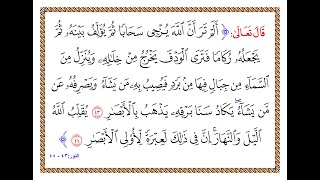 قَالَ تَعَالَىٰ: ﴿ أَلَمْ تَرَ أَنَّ ٱللَّهَ يُزْجِى سَحَابًا ثُمَّ يُؤَلِّفُ بَيْنَهُۥ ثُمَّ
يَجْعَلُهُۥ رُكَامًا فَتَرَى ٱلْوَدْقَ يَخْرُجُ مِنْ خِلَٰلِهِۦ وَيُنَزِّلُ مِنَ
ٱلسَّمَآءِ مِن جِبَالٍ فِيهَا مِنۢ بَرَدٍ فَيُصِيبُ بِهِۦ مَن يَشَآءُ وَيَصْرِفُهُۥ عَن
مَّن يَشَآءُ ۖ يَكَادُ سَنَا بَرْقِهِۦ يَذْهَبُ بِٱلْأَبْصَٰرِ ٤٣ يُقَلِّبُ ٱللَّهُ
ٱلَّيْلَ وَٱلنَّهَارَ ۚ إِنَّ فِى ذَٰلِكَ لَعِبْرَةً لِّأُو۟لِى ٱلْأَبْصَٰرِ ٤٤ ﴾
النور: ٤٣ - ٤٤